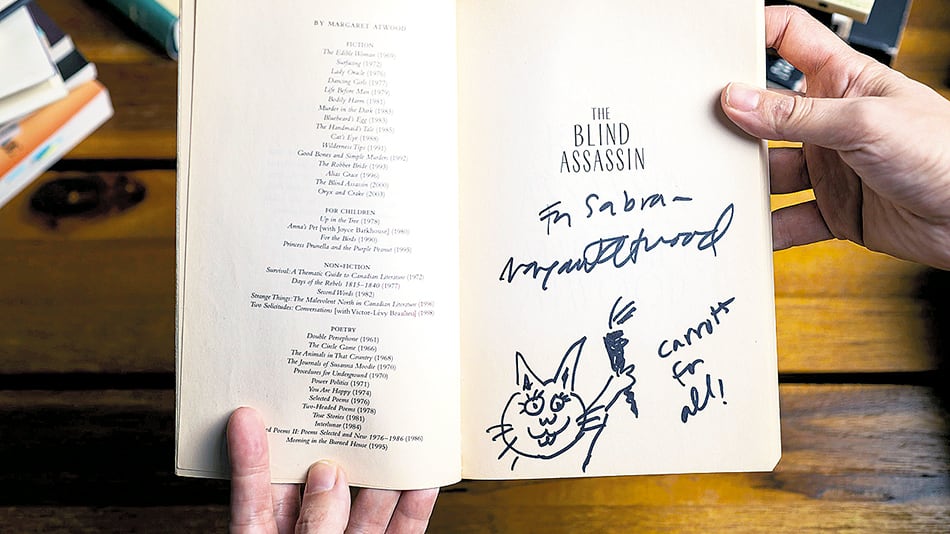 BY MARGARET ATWOOD
FICTION
The Edible Woman (1969)
Surfacing (1972)
Lady Oracle (1976)
Dancing Girls (1977)
Life Before Man (1979)
Bodily Harm (1981)
Murder in the Dark (1983)
Bluebeard's Egg (1983)
The Handmaid's Tale (1985)
Cat's Eye (1988)
Wilderness Tips (1991)
Good Bones and Simple Murders (1992)
The Robber Bride (1993)
Alias Grace (1996)
The Blind Assassin (2000)
Oryx and Crake (2003)
FOR CHILDREN
Up in the Tree (1978)
Anna's Pet [with Joyce Barkhouse] (1980)
For the Birds (1990)
Princess Prunella and the Purple Peanut (1995)
NON-FICTION
Survival: A Thematic Guide to Canadian Literature (1972)
Days of the Rebels 1815–1840 (1977)
Second Words (1982)
Strange Things: The Malevolent North in Canadian Literature (1996)
Two Solicitudes: Conversations [with Victor-Lévy Beaulieu] (1998)
POETRY
Double Persephone (1961)
The Circle Game (1966)
The Animals in That Country (1968)
The Journals of Susanna Moodie (1970)
Procedures for Underground (1970)
Power Politics (1971)
You Are Happy (1974)
Selected Poems (1976)
Two-Headed Poems (1978)
True Stories (1981)
Interlunar (1984)
Poems II: Poems Selected and New 1976–1986 (1986)
Morning in the Burned House (1995)
THE
BLIND
ASSASSIN
For Sabra–
Margaret Atwood
Carrots
for
all!